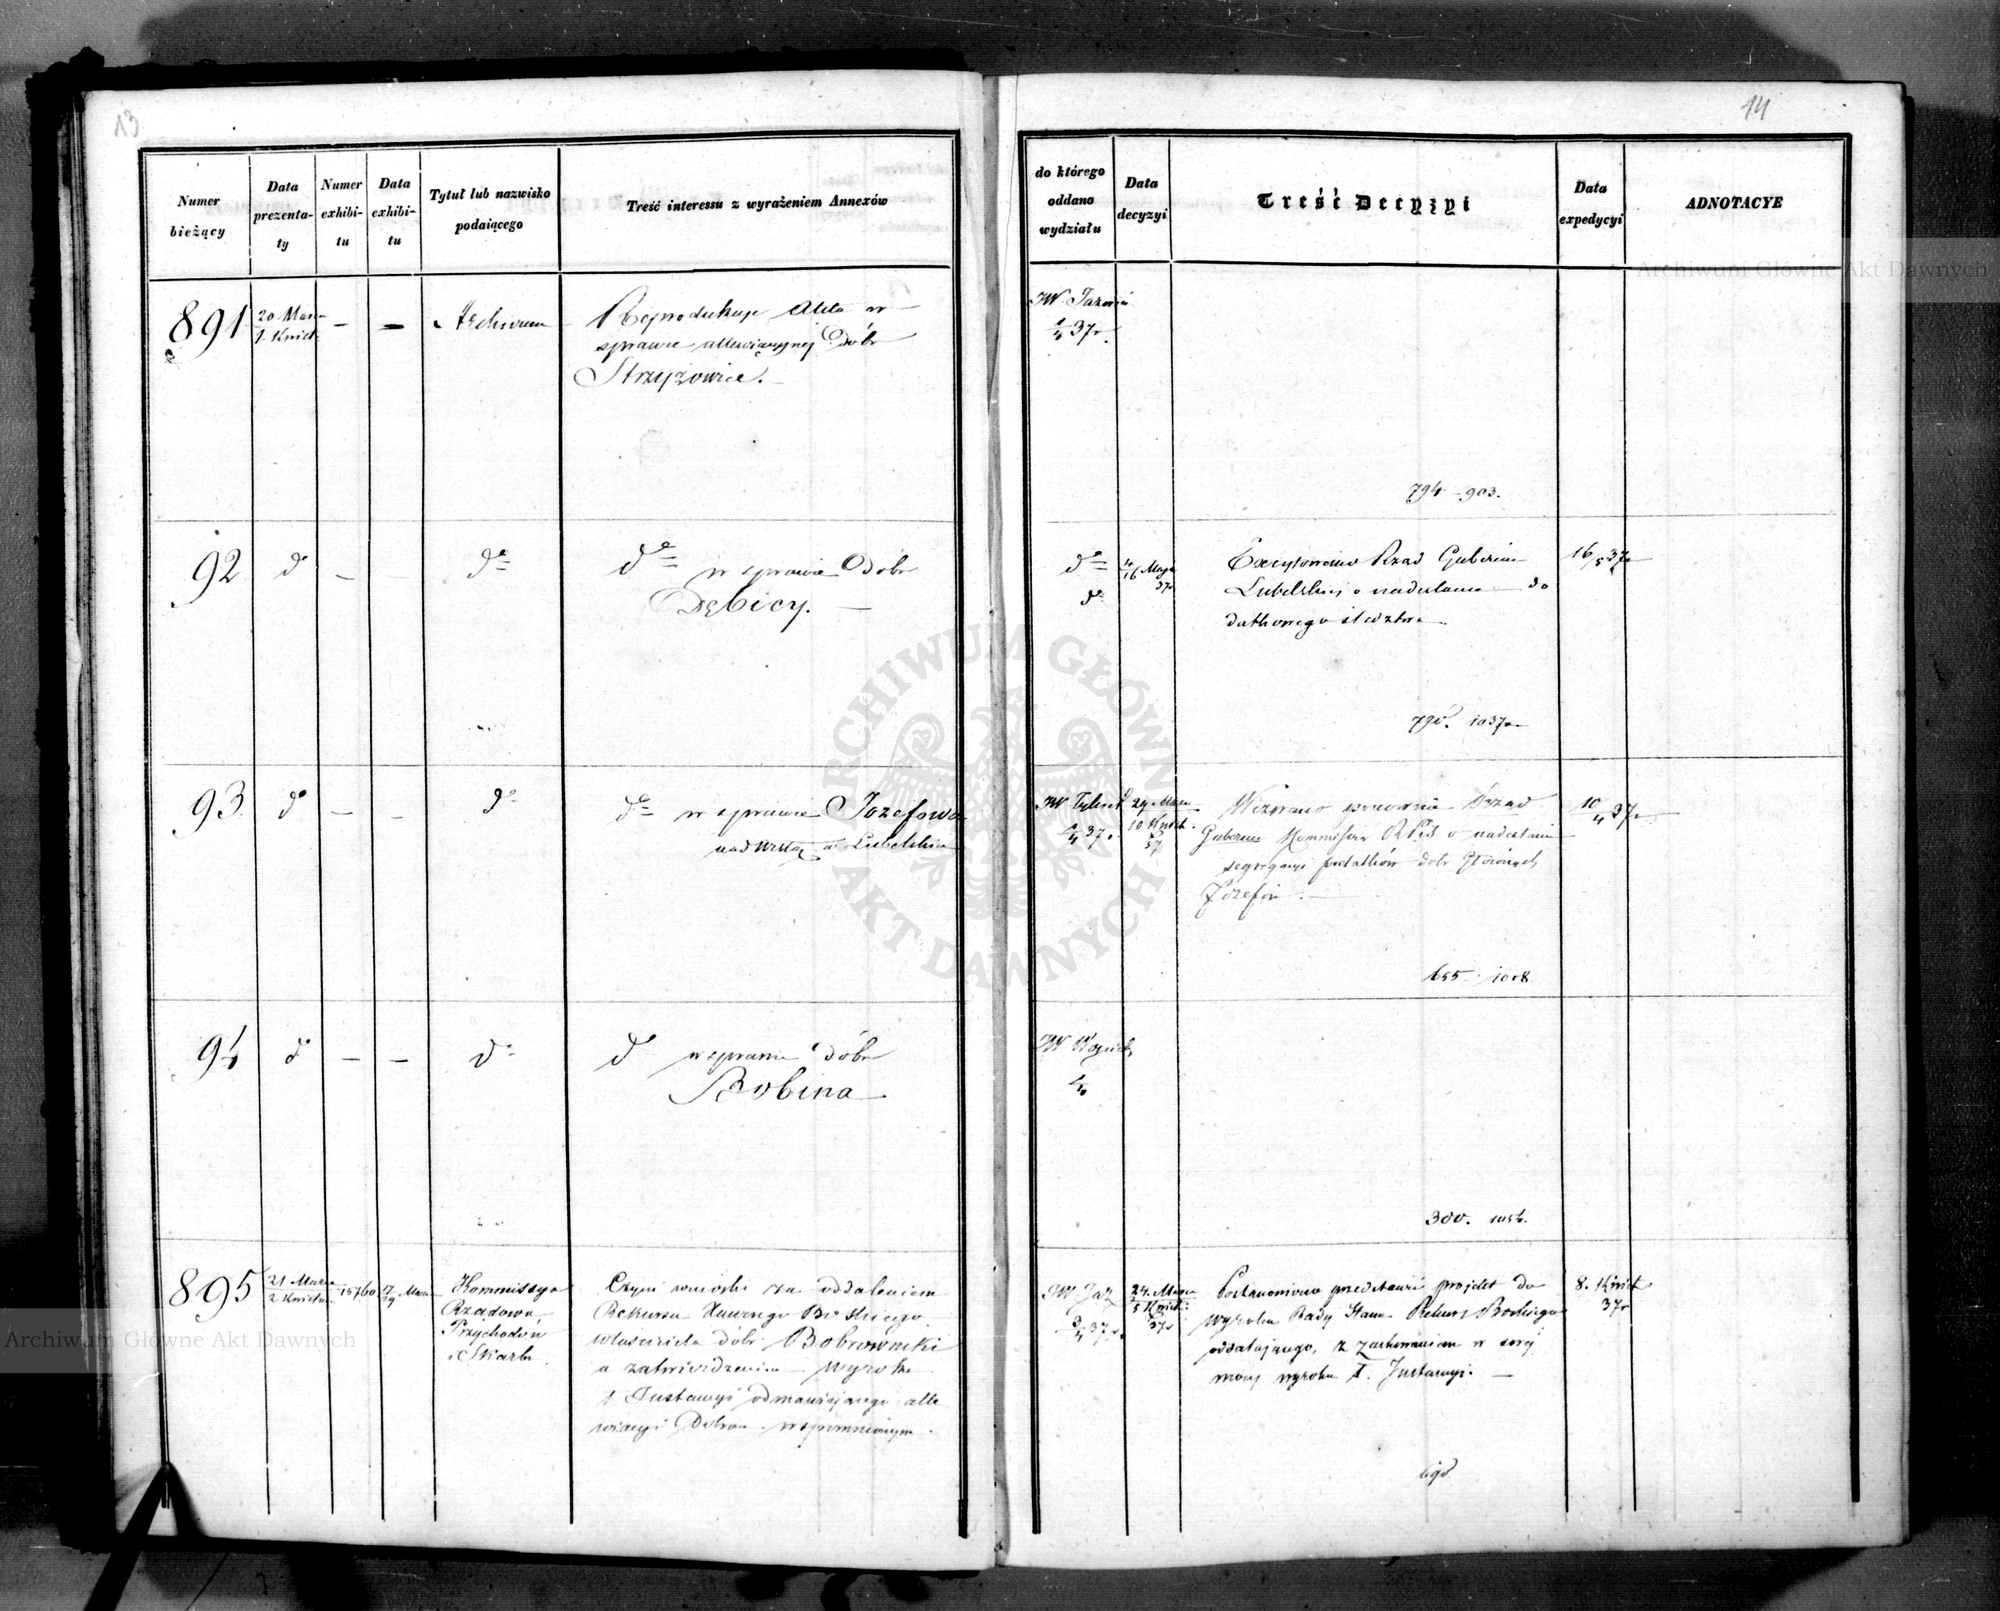 13
Numer
bieżący
Data
prezenta-
ty
Numer
exhibi-
tu
Data
exhibi-
tu
Tytuł lub nazwisko
podaiącego
Treść interessu z wyrażeniem Annexów
891
20 Marca
1 Kwiet.
—
—
Archiwum
Reprodukuje Akta w
sprawie allewiacyjnej Dóbr
Strzyżowice.
92
do
—
—
do
do w sprawie Dóbr
Dębicy.
93.
do
—
—
do
do w sprawie Józefowa
nad Wisłą w Lubelskim
94
do
—
—
do
do w sprawie dóbr
Bobina
895
21 Marca
2 Kwietnia
15760
17/29 Marca
Kommissya
Rządowa
Przychodów
i Skarbu
Czyni wnioski za oddaleniem
Rekursu
właściciela dóbr Bobrowniki
a zatwierdzeniem Wyroku
1 Instancyi odmawiającego alle
wiacyi Dobrom wspomnionym.
14
do którego
oddano
wydziału
Data
decyzyi
Treść Decyzyi
Data
expedycyi
ADNOTACYE
JW
1/4 37r.
794 - 903.
do
do
4/16 Maja
37r
Excytowano Rząd Gubern
Lubelski o nadesłanie do
datkowego śledztwa
16/5 37r
790. 1037
JW
1/4 37r.
29 Marca
10 Kwiet.
37
Wezwano ponownie Rząd
Gubern
podatków dóbr Głównych
Józefów.
10/4 37r.
655. 1008
JW
300. 1056.
JW Jaz
3/4 37r.
24 Marca
5 Kwiet.
37r
Postanowiono przedstawić projekt do
wyroku Rady Stanu Rekurs
oddalającego, z zachowaniem w swej
mocy wyroku I. Instancyi.
8. Kwiet
37r
Archiwum Główne Akt Dawnych
Archiwum Główne Akt Dawnych
ARCHIWUM GŁÓWNE
AKT DAWNYCH